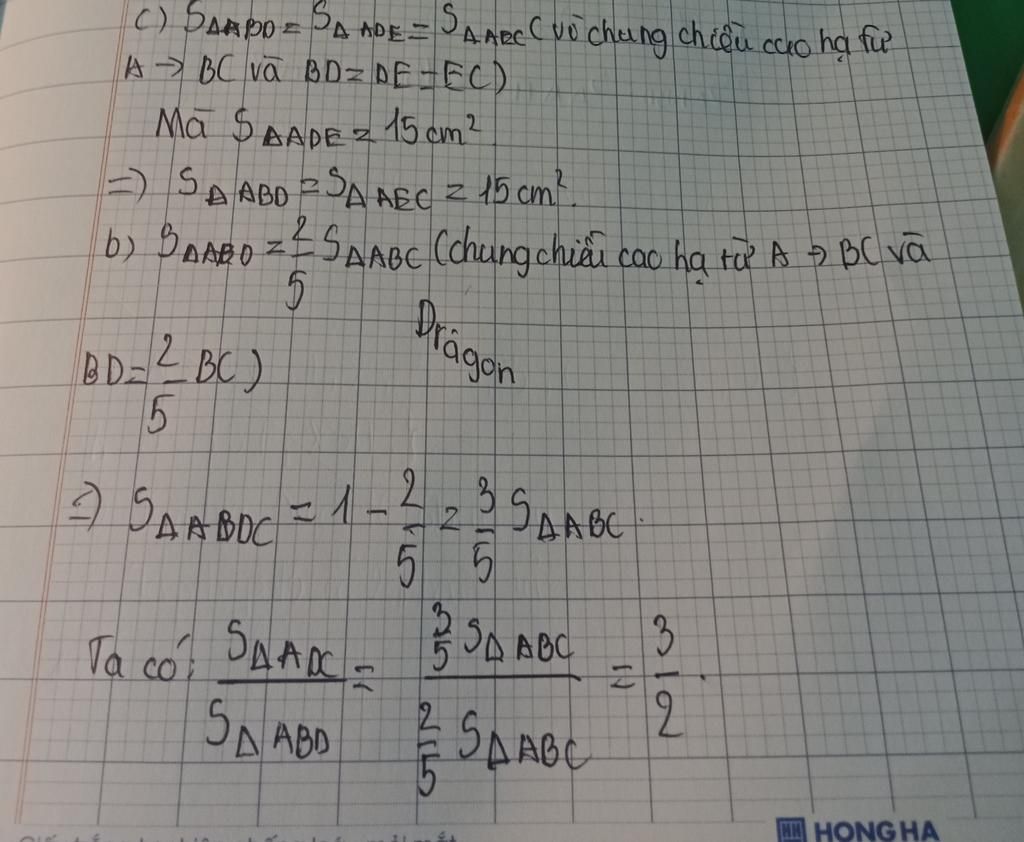 c) S△ABD = S△ADE = S△AEC (vì chung chiều cao hạ từ
A → BC và BD = DE = EC)
Mà S△ADE = 15 cm²
=) S△ABD = S△AEC = 15 cm².
b) S△ABD = 2/5 S△ABC (chung chiều cao hạ từ A → BC và
Drâgon
BD = 2/5 BC)
=) S△ABDC = 1 - 2/5 = 3/5 S△ABC.
Ta có: S△ADC / S△ABD = 3/5 S△ABC / 2/5 S△ABC = 3/2.
HH HONG HA